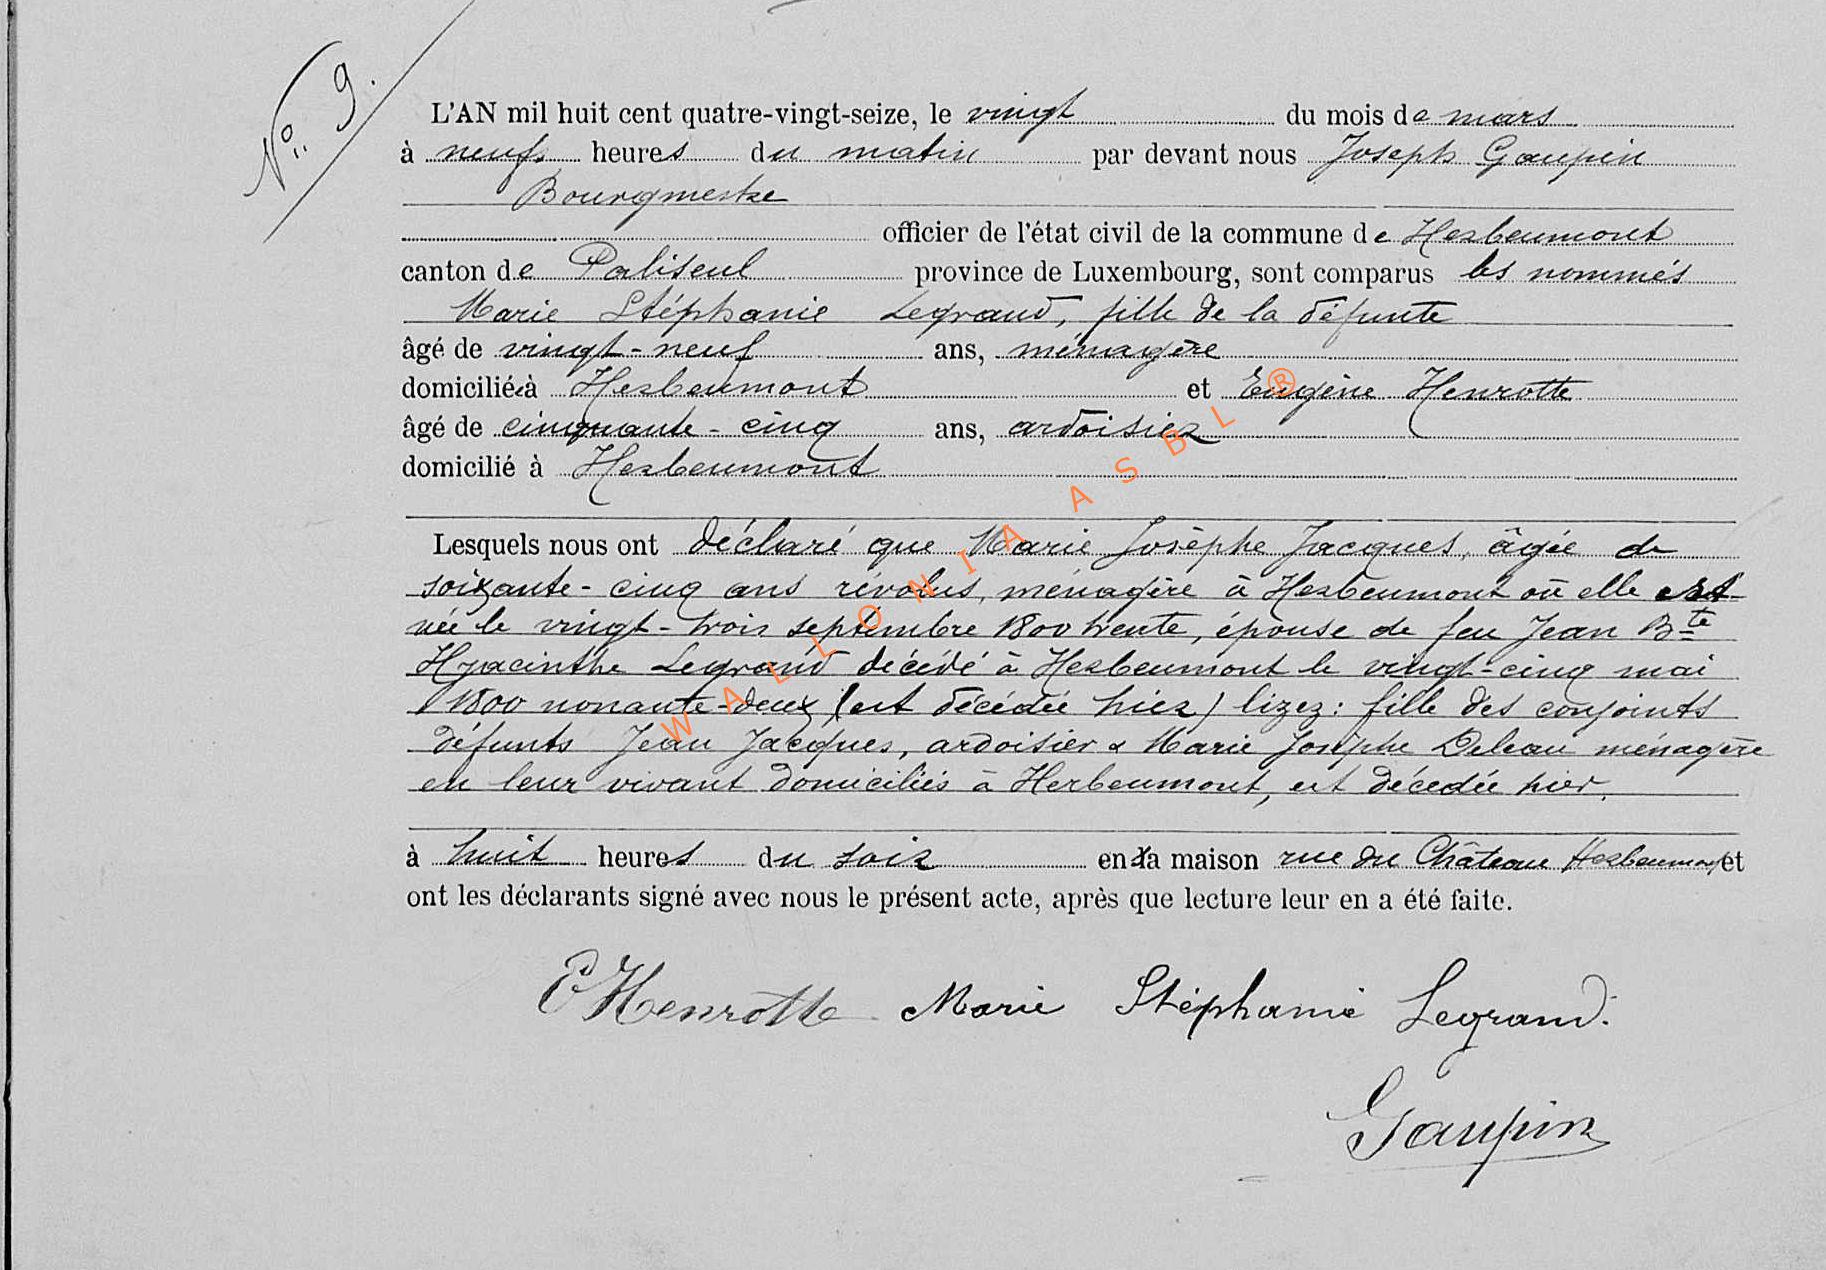 N° 9.
L'AN mil huit cent quatre-vingt-seize, le vingt du mois de mars
à neufs heures du matin par devant nous Joseph Gaupin
Bourgmestre
officier de l'état civil de la commune de Herbeumont
canton de Paliseul province de Luxembourg, sont comparus les nommés
Marie Stéphanie Legrand, fille de la défunte
âgé de vingt-neuf ans, ménagère
domiciliée à Herbeumont et Eugène Henrotte
âgé de cinquante-cinq ans, ardoisier
domicilié à Herbeumont
Lesquels nous ont déclaré que Marie Josèphe Jacques, âgée de
soixante-cinq ans révolus, ménagère à Herbeumont où elle est
née le vingt-trois septembre 1800 trente, épouse de feu Jean Bte
Hyacinthe Legrand décédé à Herbeumont le vingt-cinq mai
1800 nonante-deux (est décédée hier) lizez: fille des conjoints
défunts Jean Jacques, ardoisier & Marie Josèphe Deleau ménagère
en leur vivant domiciliés à Herbeumont, est décédée hier,
à huit heures du soir en la maison rue du Château Herbeumont et
ont les déclarants signé avec nous le présent acte, après que lecture leur en a été faite.
E Henrotte Marie Stéphanie Legrand.
Gaupin
WALLONIA ASBL ®